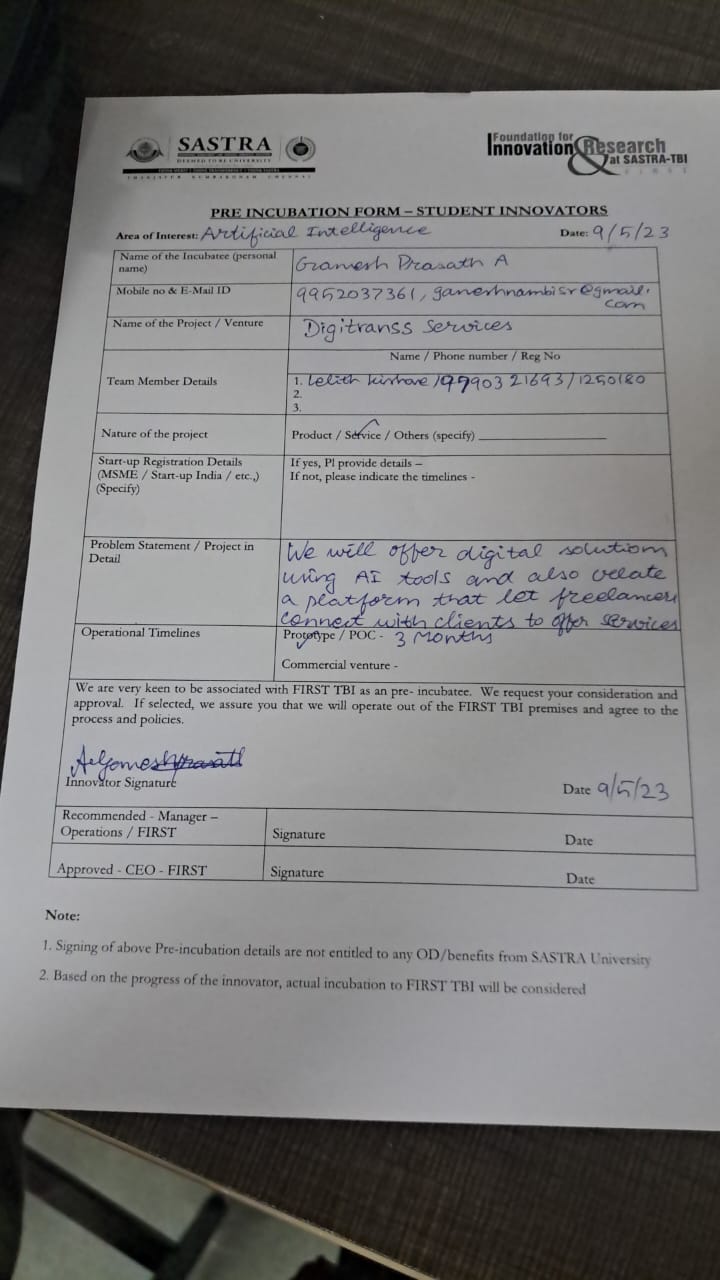 SASTRA
DEEMED TO BE UNIVERSITY
THANJAVUR KUMBAKONAM CHENNAI
Foundation for
Innovation & Research
at SASTRA-TBI
FIRST
PRE INCUBATION FORM – STUDENT INNOVATORS
Area of Interest: Artificial Intelligence Date: 9/5/23
Name of the Incubatee (personal name) Ganesh Prasath A
Mobile no & E-Mail ID 9952037361, ganeshnambisr@gmail.
com
Name of the Project / Venture Digitranss Services
Name / Phone number / Reg No
Team Member Details
1. Lelith kishore / 9790321693 / 1250180
2.
3.
Nature of the project Product / Service / Others (specify)
Start-up Registration Details If yes, Pl provide details –
(MSME / Start-up India / etc.,) If not, please indicate the timelines -
(Specify)
Problem Statement / Project in Detail
We will offer digital solution
using AI tools and also create
a platform that let freelancers
connect with clients to offer services
Operational Timelines Prototype / POC - 3 Months
Commercial venture -
We are very keen to be associated with FIRST TBI as an pre- incubatee. We request your consideration and
approval. If selected, we assure you that we will operate out of the FIRST TBI premises and agree to the
process and policies.
Innovator Signature Date 9/5/23
Recommended - Manager –
Operations / FIRST Signature Date
Approved - CEO - FIRST Signature Date
Note:
1. Signing of above Pre-incubation details are not entitled to any OD/benefits from SASTRA University
2. Based on the progress of the innovator, actual incubation to FIRST TBI will be considered